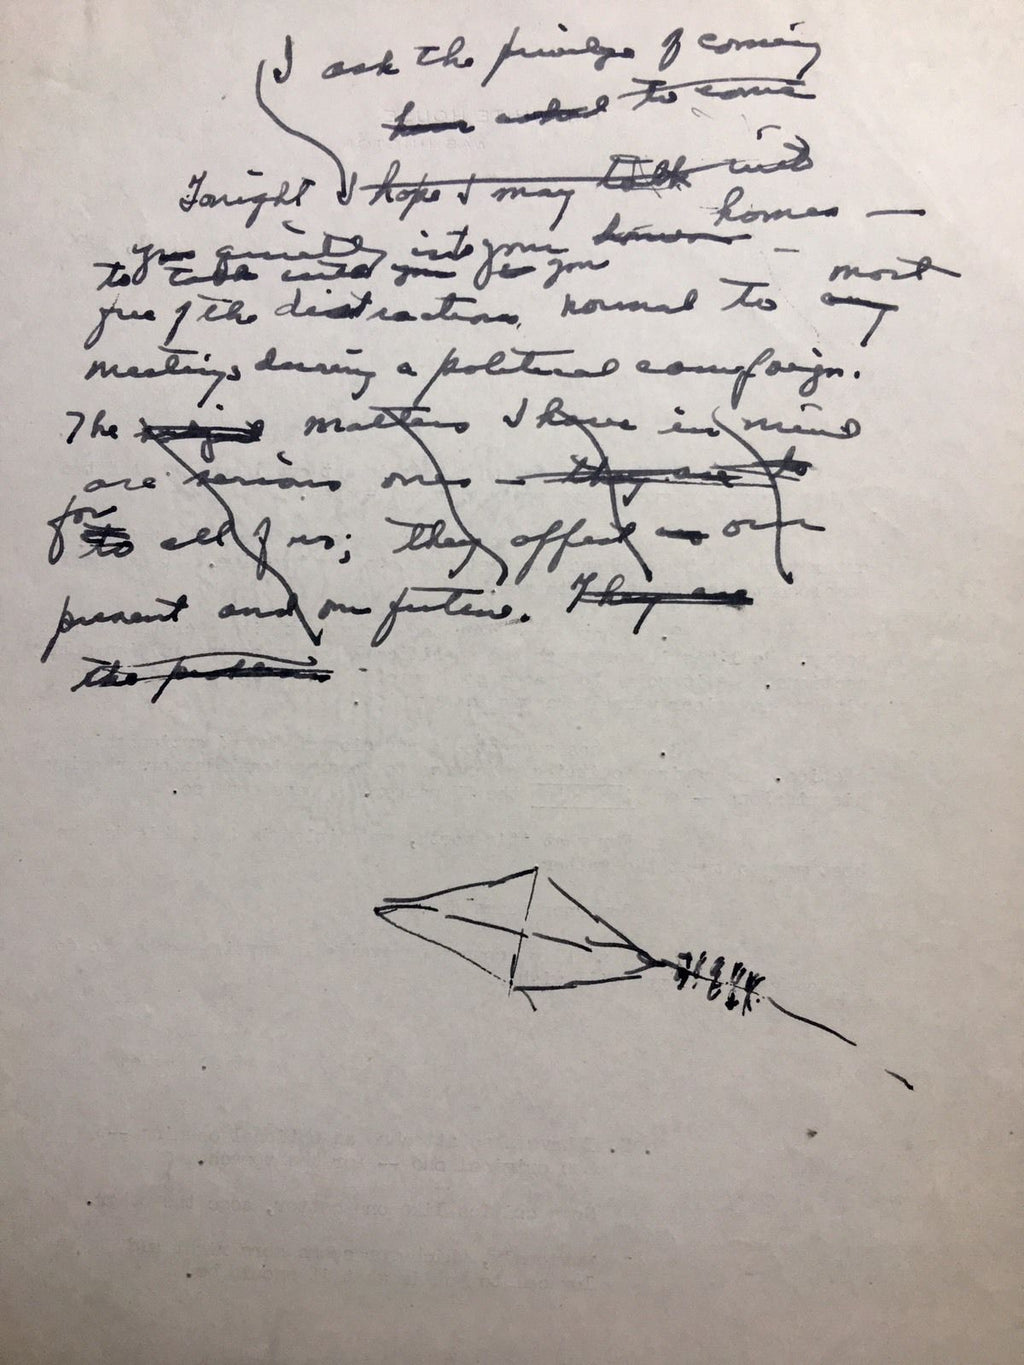 I ask the privilege of coming
have asked to come
Tonight I hope I may talk with
you quietly into your homes homes —
to talk with you as you
free of the distractions, normal to any most
meetings during a political campaign.
The matters I have in mind
are serious ones — they are to
for
to all of us; they affect our
present and our future. They are
the problems